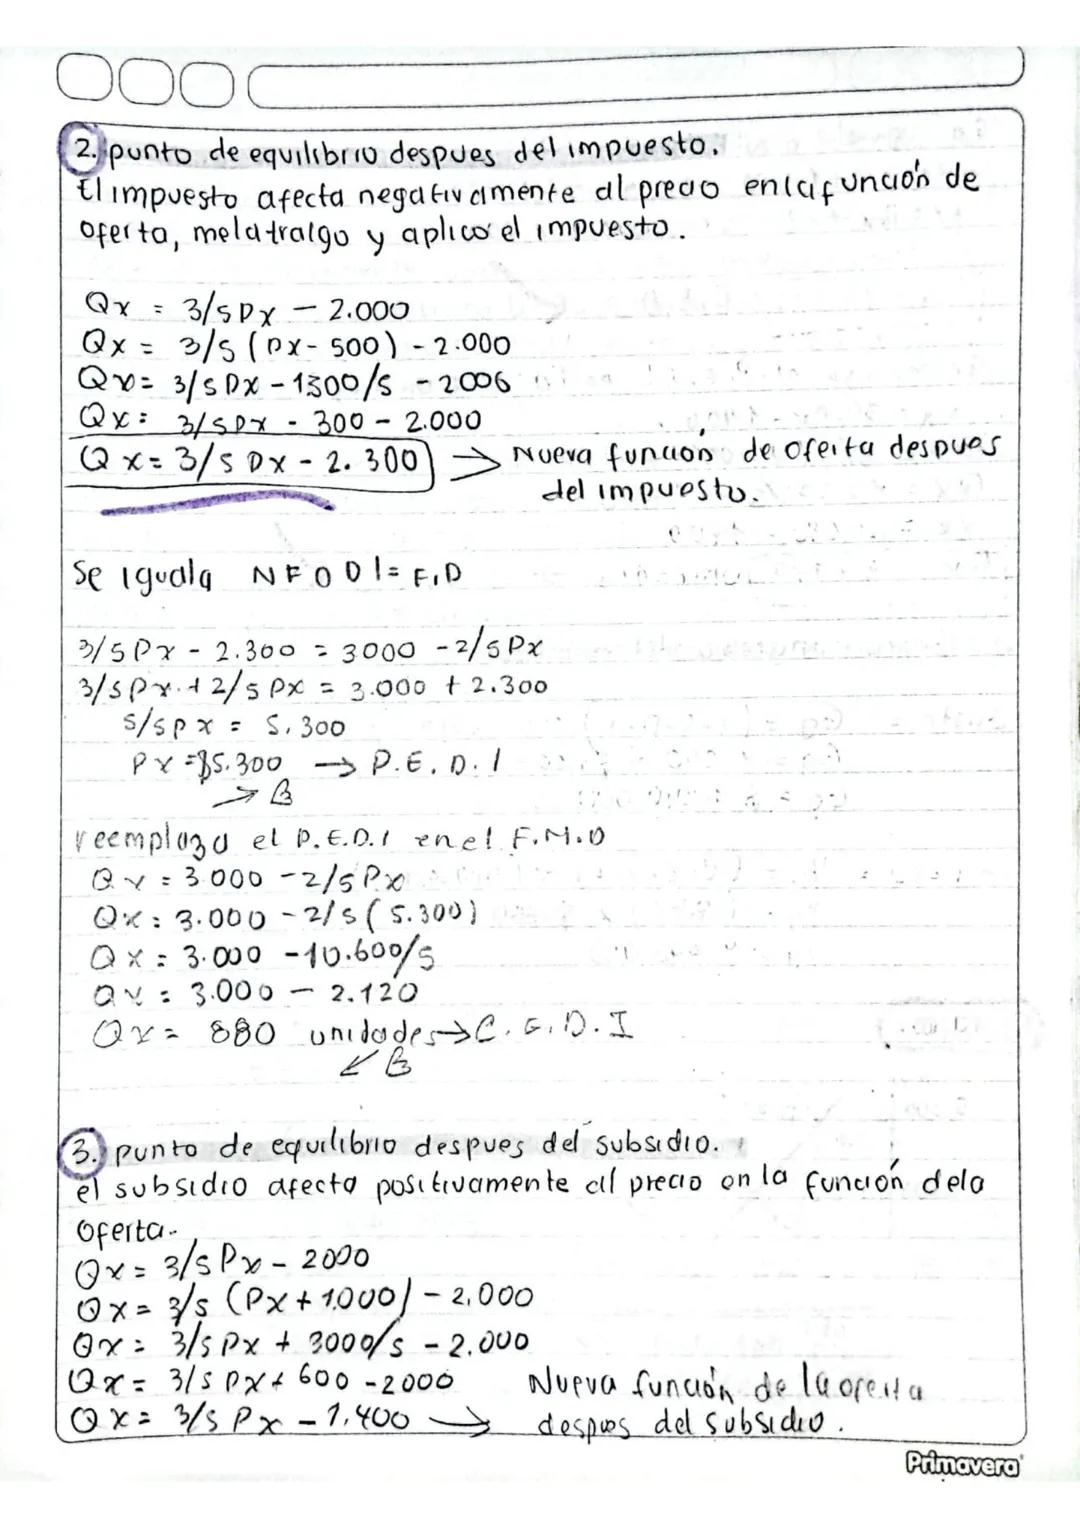 2. punto de equilibrio despues del impuesto.
El impuesto afecta negativamente al precio en la función de
oferta, me la traigo y aplico el impuesto.
Qx = 3/5 Px - 2.000
Qx = 3/5 (Px - 500) - 2.000
Qx = 3/5 Px - 1500/5 - 2000
Qx = 3/5 Px - 300 - 2.000
Qx = 3/5 Px - 2.300 → Nueva función de oferta despues
del impuesto.
Se iguala NFODI = F.D
3/5 Px - 2.300 = 3000 - 2/5 Px
3/5 Px + 2/5 Px = 3.000 + 2.300
5/5 Px = 5.300
Px = $5.300 → P.E.D.I
→ B
reemplazo el P.E.D.I en el F.M.O
Qx = 3.000 - 2/5 Px
Qx = 3.000 - 2/5 (5.300)
Qx = 3.000 - 10.600/5
Qx = 3.000 - 2.120
Qx = 880 unidades → C.E.D.I
↙ B
3. punto de equilibrio despues del subsidio.
el subsidio afecta positivamente al precio en la función de la
oferta.
Qx = 3/5 Px - 2000
Qx = 3/5 (Px + 1.000) - 2.000
Qx = 3/5 Px + 3000/5 - 2.000
Qx = 3/5 Px + 600 - 2000
Qx = 3/5 Px - 1.400 → Nueva función de la oferta
despues del subsidio.
Primavera